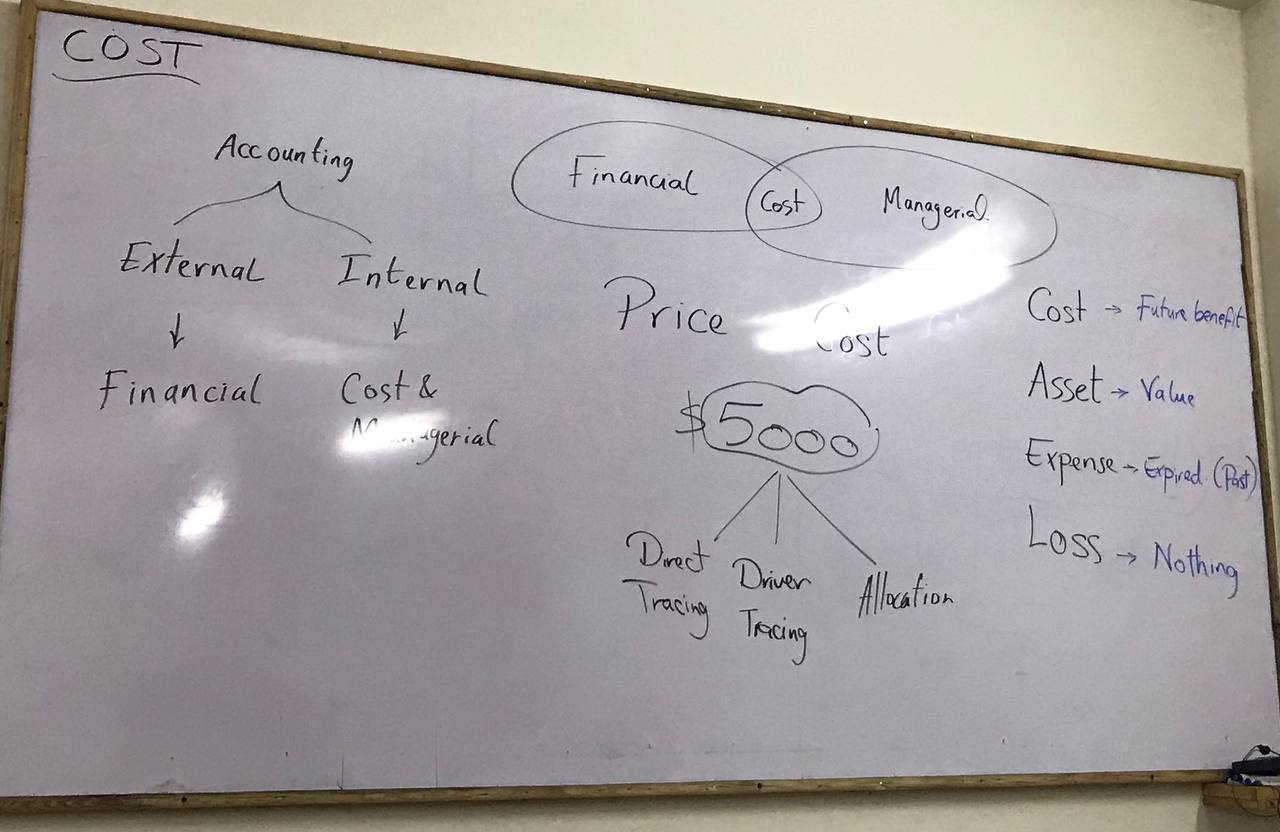 COST
Accounting
External Internal
Financial Cost &
Managerial
Financial Cost Managerial
Price Cost
$5000
Direct
Tracing
Driver
Tracing
Allocation
Cost → Future benefit
Asset → Value
Expense → Expired (Past)
Loss → Nothing